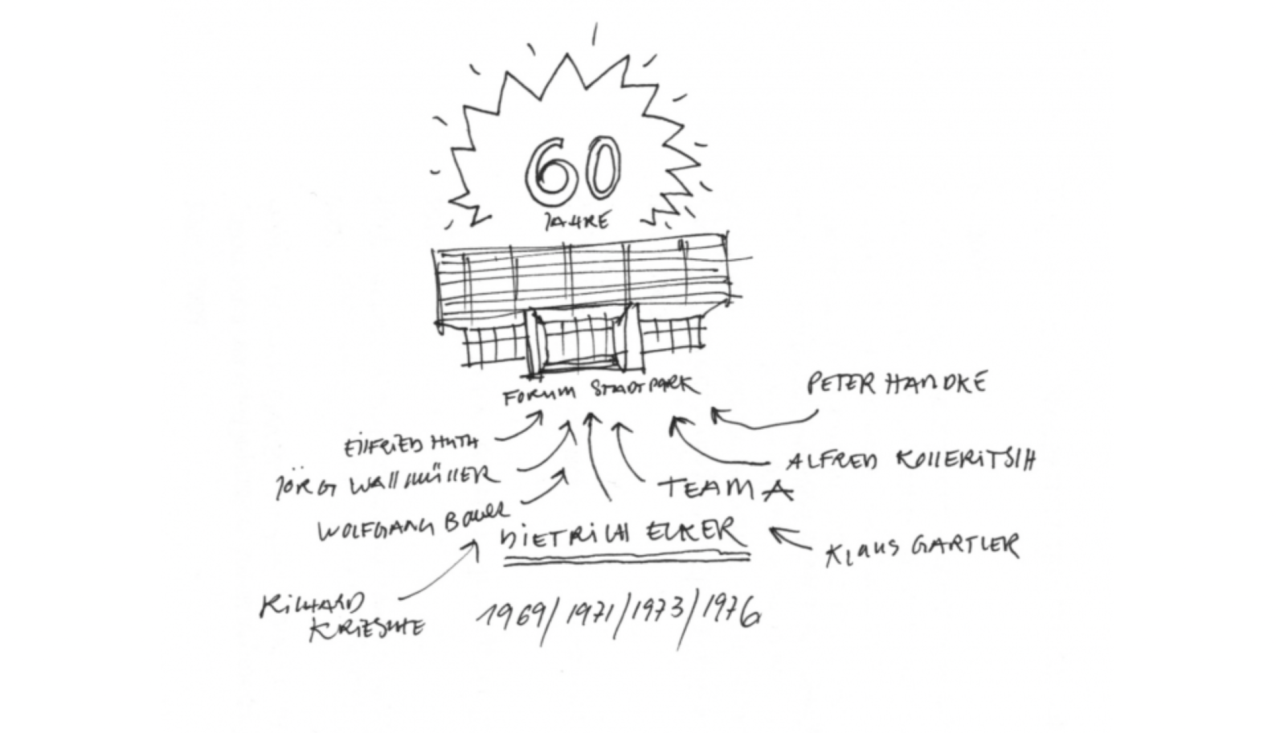 60
JAHRE
FORUM STADTPARK
PETER HANDKE
EILFRIED HUTH
ALFRED KOLLERITSCH
JÖRG WALLMÜLLER
TEAM A
WOLFGANG BAUER
DIETRICH ECKER
KLAUS GARTLER
RICHARD
KRIESCHE
1969/1971/1973/1976